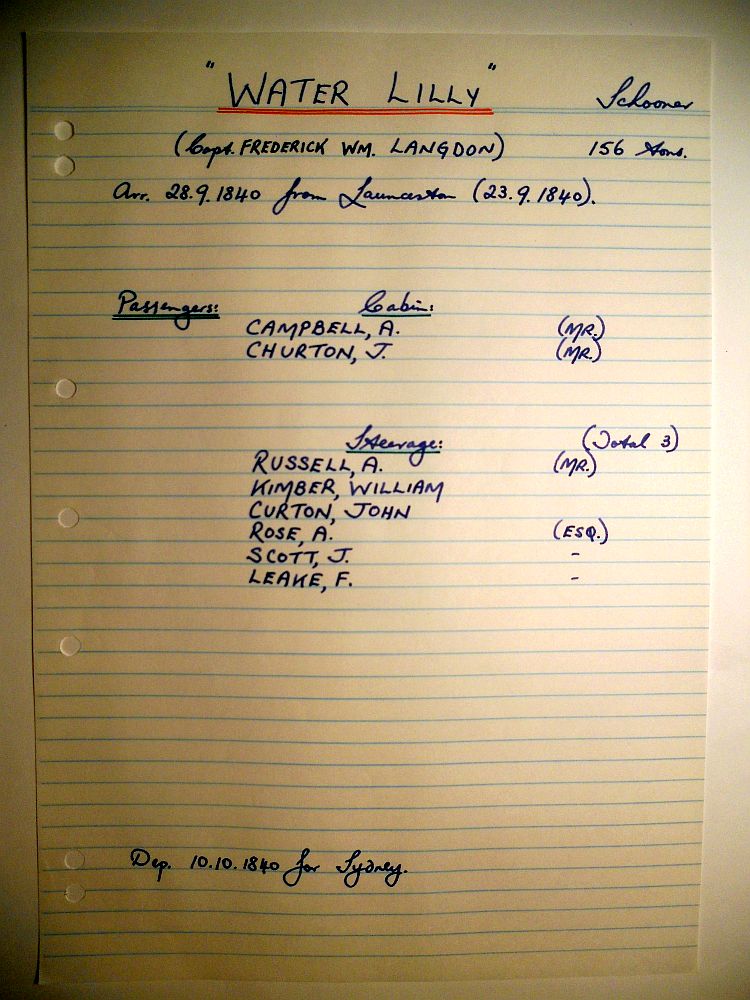 "WATER LILLY" Schooner
(Capt. FREDERICK WM. LANGDON) 156 tons.
Arr. 28.9.1840 from Launceston (23.9.1840).
Passengers: Cabin:
CAMPBELL, A. (MR.)
CHURTON, J. (MR.)
Steerage: (Total 3)
RUSSELL, A. (MR.)
KIMBER, WILLIAM
CURTON, JOHN
ROSE, A. (ESQ.)
SCOTT, J. -
LEAKE, F. -
Dep. 10.10.1840 for Sydney.